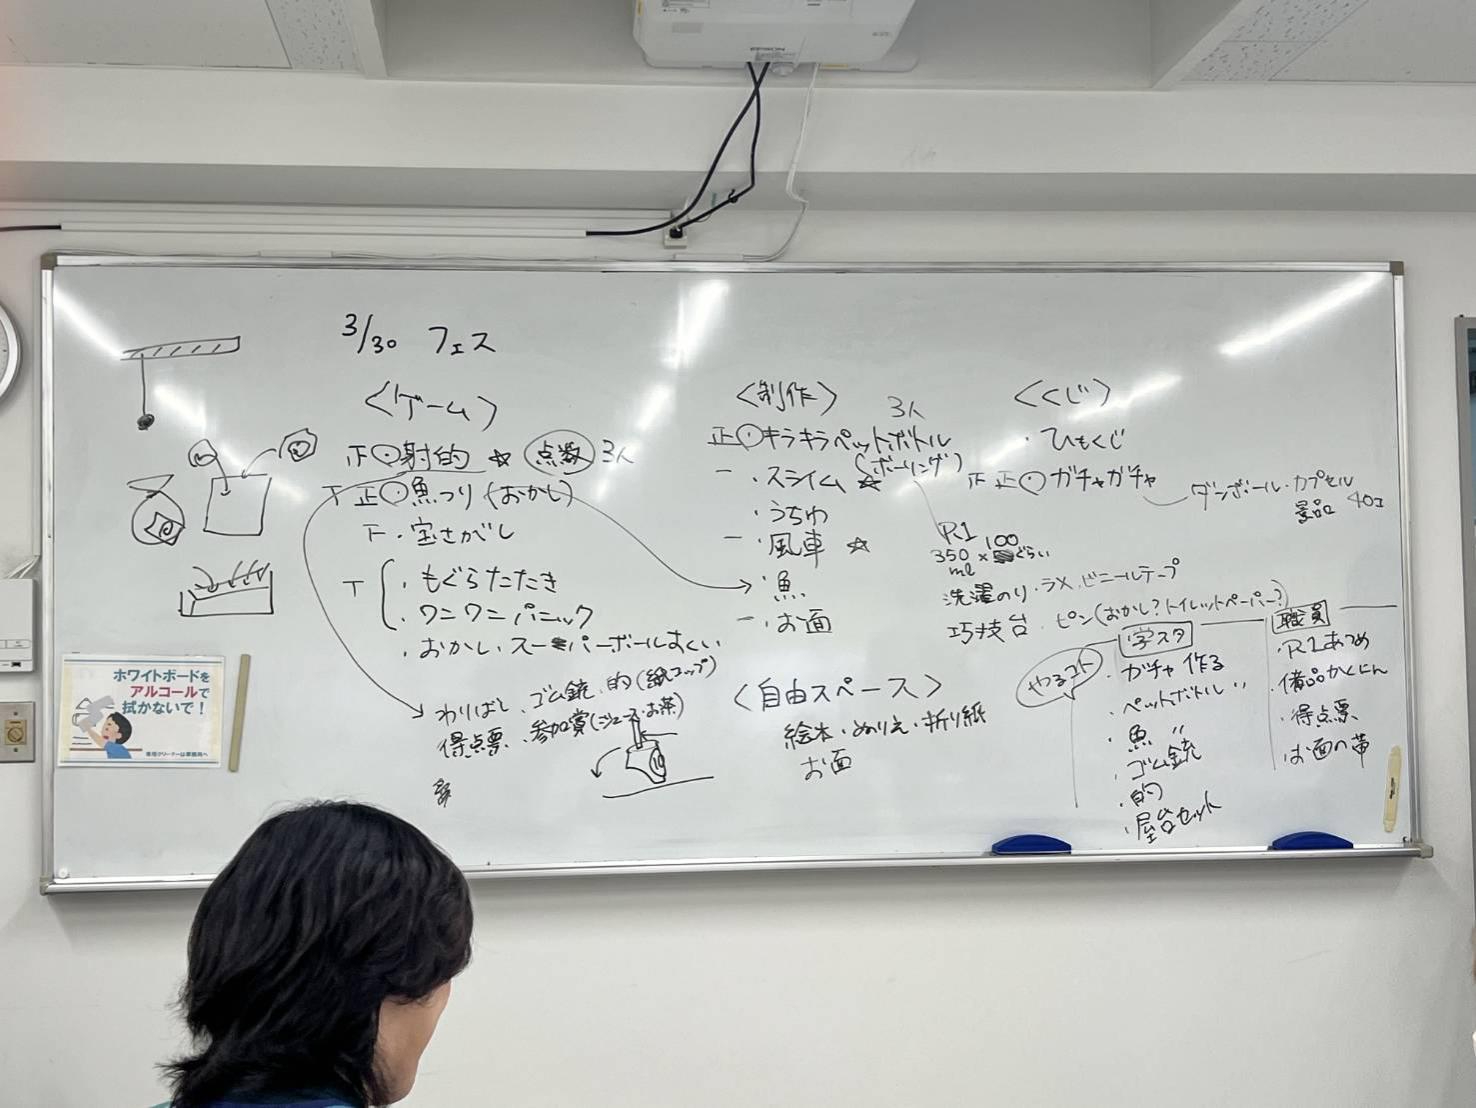 3/30 フェス
<ゲーム>
正・射的 ☆ 点数 3人
T 正・魚つり (おかし)
下・宝さがし
T
・もぐらたたき
・ワニワニパニック
・おかし、スーパーボールすくい
わりばし、ゴム銃、的(紙コップ)
得点票、参加賞(ジュース・お茶)
10
<制作>
3人
正・キラキラペットボトル
(ボーリング)
一・スライム ☆
・うちわ
一・風車 ☆
・魚
一・お面
<自由スペース>
絵本・ぬりえ・折り紙
お面
<くじ>
・ひもくじ
下 正・ガチャガチャ
ダンボール・カプセル
景品 40コ
R1
350ml × 100ぐらい
洗濯のり・ラメ、ビニールテープ
巧技台・ピン(おかし?トイレットペーパー?)
やるコト
学スタ
・ガチャ作る
・ペットボトル 〃
・魚 〃
・ゴム銃
・的
・屋台セット
職員
・R1あつめ
・備品かくにん
・得点票
・お面の帯
ホワイトボードを
アルコールで
拭かないで!